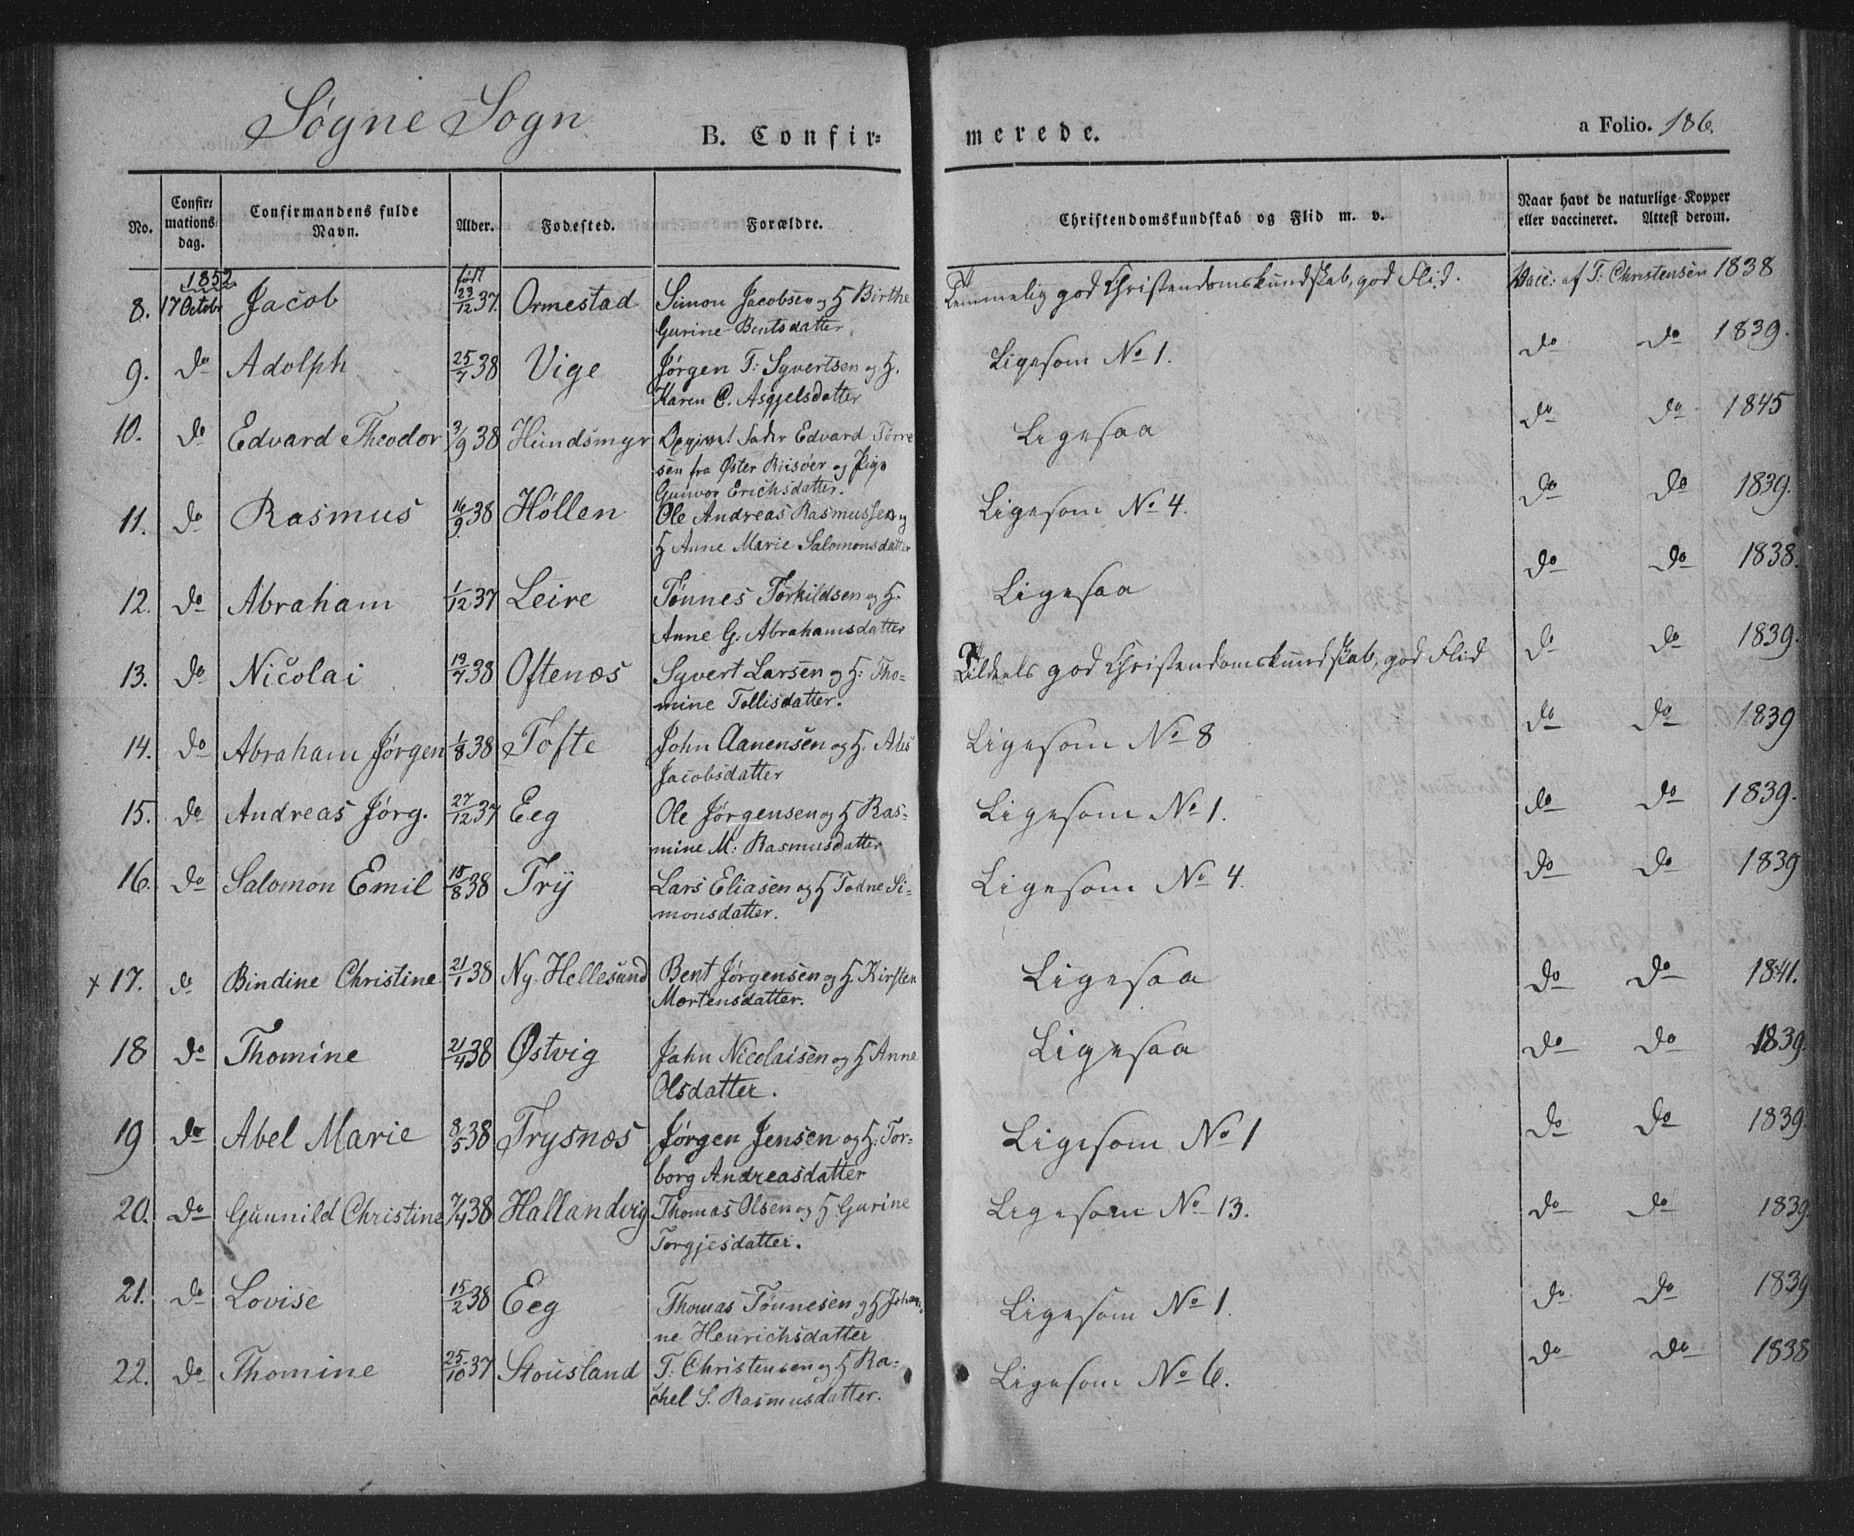 Søgne Sogn
B. Confir=
merede.
a Folio. 186.
No.
Confir=
mations
dag.
Confirmandens fulde
Navn.
Alder.
Fødested.
Forældre.
Christendomskundskab og Flid m. v.
Naar havt de naturlige Kopper
eller vaccineret. Attest derom.
1852 født
8. 17 Octobr Jacob 23/12 37 Ormestad Simon Jacobsen og H Birthe Temmelig god Christendomskundskab, god Flid. Vacc: af T. Christensen 1838
Gurine Bentsdatter.
9. do Adolph 25/7 38 Vige Jørgen T: Syvertsen og H. Ligesom No 1. do do 1839.
Karen C. Asgjelsdatter
10. do Edvard Theodor 3/9 38 Hundsmyr Opgivet Fader Edvard Tørre Ligesaa do do 1845
sen fra Øster Riisøer og Pige
Gunvor Erichsdatter.
11. do Rasmus 16/9 38 Høllen Ole Andreas Rasmussen og Ligesom No 4. do do 1839.
H Anne Marie Salomonsdatter
12. do Abraham 1/12 37 Leire Tønnes Torkildsen og H. Ligesaa do do 1838.
Anne G. Abrahamsdatter
13. do Nicolai 19/7 38 Oftenæs Syvert Larsen og H: Tho= Tildeels god Christendomskundskab, god Flid do do 1839.
mine Tollisdatter.
14. do Abraham Jørgen 1/8 38 Tofte John Aanensen og H. Ales Ligesom No 8 do do 1839
Jacobsdatter
15. do Andreas Jørg. 27/12 37 Eeg Ole Jørgensen og H Ras= Ligesom No 1. do do 1839.
mine M: Rasmusdatter
16. do Salomon Emil 15/8 38 Try Lars Eliasen og H Todne Si= Ligesom No 4. do do 1839
monsdatter.
x 17. do Bindine Christine 21/1 38 Ny-Hellesund Bent Jørgensen og H. Kirsten Ligesaa do do 1841.
Mortensdatter.
18 do Thomine 21/4 38 Østvig Jahn Nicolaisen og H Anne Ligesaa do do 1839.
Olsdatter.
19 do Abel Marie 8/5 38 Trysnæs Jørgen Jensen og H: Tor= Ligesom No 1 do do 1839.
borg Andreasdatter
20. do Gunnild Christine 7/4 38 Hallandvig Thomas Olsen og H. Gurine Ligesom No 13. do do 1839.
Torgjesdatter.
21. do Lovise 15/2 38 Eeg Thomas Tønnesen og H Johan= Ligesom No 1. do do 1839
ne Henrichsdatter
22. do Thomine 25/10 37 Stousland T: Christensen og H Ra= Ligesom No 6. do do 1838
chel S. Rasmusdatter.